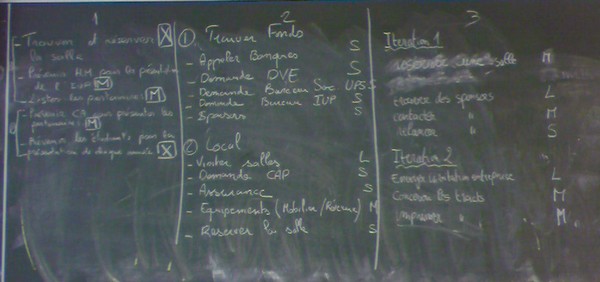 1
- Trouver et réserver X
la salle
- Prévenir pour la
de l' IUP M
- les partenaires M
- Prévenir CA pour les
partenaires M
- Prévenir les étudiants pour la
présentation de chaque année X
2
① Trouver Fonds
S
- Appeler Banques S
- Demande DVE S
- Demande Bureau UPS S
- Demande Bureau IUP S
- Sponsors S
② Local
- Visiter salles L
- Demande CAP S
- Assurance S
- Equipements (Mobilier / Réseau) M
- Réserver la salle S
3
Iteration 1
salle M
des sponsors L
contacter " M
relancer " S
Iteration 2
Envoyer invitation entreprise L
Concevoir les tracts M
imprimer " M